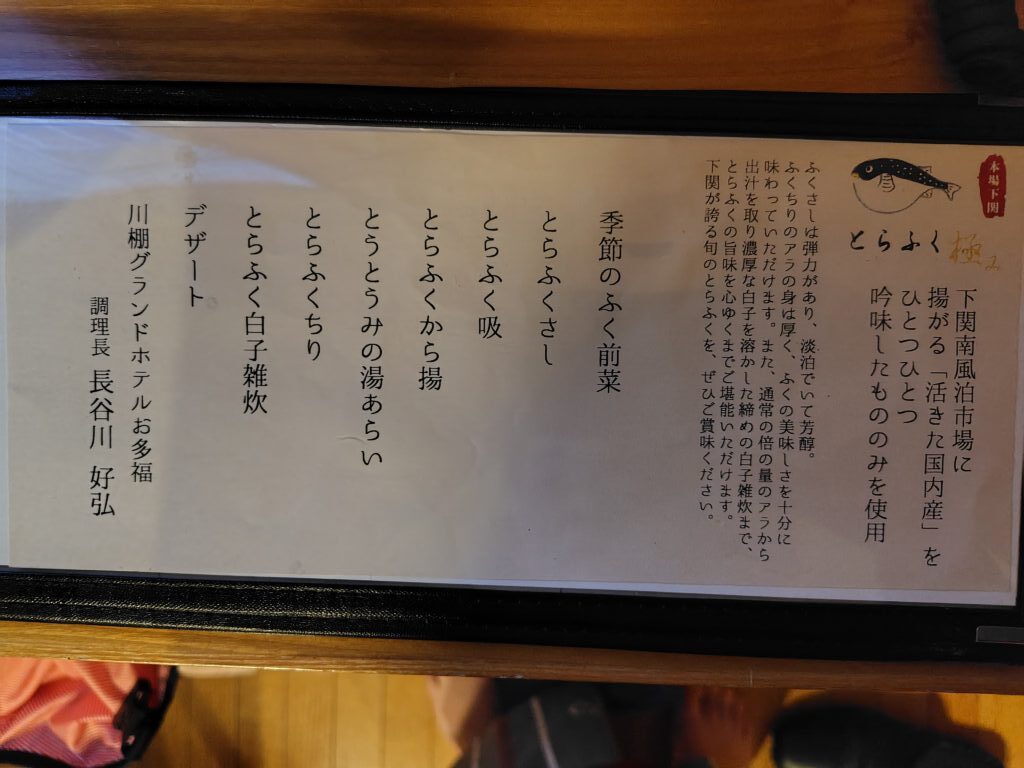 本場下関
とらふく 極み
下関南風泊市場に
揚がる「活きた国内産」を
ひとつひとつ
吟味したもののみを使用
ふくさしは弾力があり、淡泊でいて芳醇。
ふくちりのアラの身は厚く、ふくの美味しさを十分に
味わっていただけます。また、通常の倍の量のアラから
出汁を取り濃厚な白子を溶かした締めの白子雑炊まで、
とらふくの旨味を心ゆくまでご堪能いただけます。
下関が誇る旬のとらふくを、ぜひご賞味ください。
季節のふく前菜
とらふくさし
とらふく吸
とらふくから揚
とうとうみの湯あらい
とらふくちり
とらふく白子雑炊
デザート
川棚グランドホテルお多福
調理長 長谷川 好弘